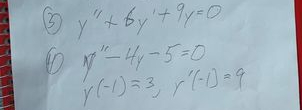 ③ y" + 6y' + 9y = 0
④ y" - 4y - 5 = 0
y(-1) = 3, y'(-1) = 9